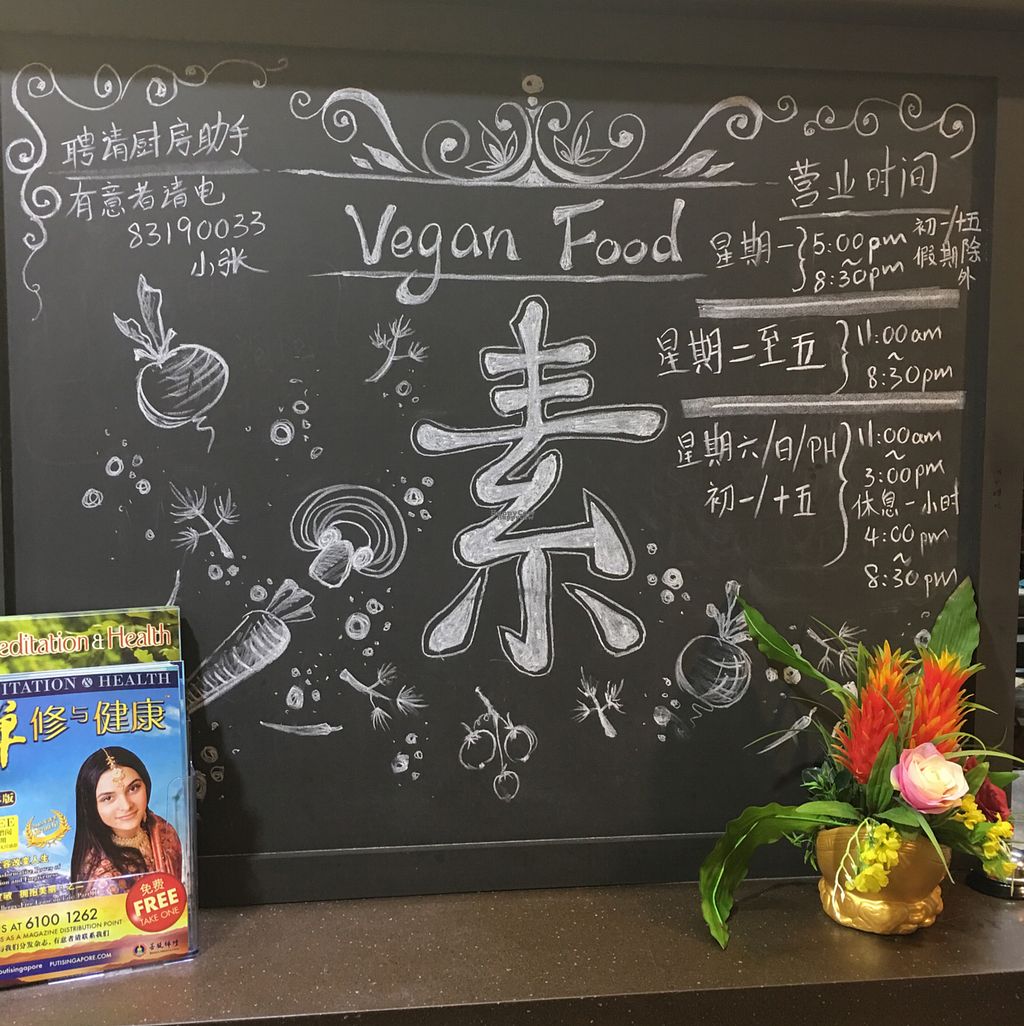 聘请厨房助手
有意者请电
83190033
小张
Vegan Food
素
营业时间
星期一
5:00pm
~
8:30pm
初一/十五
假期除
外
星期二至五
11:00am
~
8:30pm
星期六/日/PH
初一/十五
11:00am
~
3:00pm
休息一小时
4:00pm
~
8:30pm
HappyCow
editation & Health
ITATION & HEALTH
修与健康
版
FREE
免费
FREE
TAKE ONE
US AT 6100 1262
S AS A MAGAZINE DISTRIBUTION POINT
与我们分发杂志，有意者请联系我们
putisingapore PUTISINGAPORE.COM